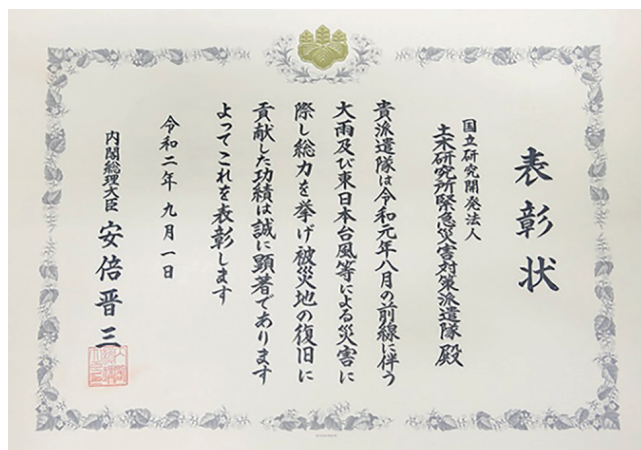 表彰状
国立研究開発法人
土木研究所緊急災害対策派遣隊 殿
貴派遣隊は令和元年八月の前線に伴う
大雨及び東日本台風等による災害に
際し総力を挙げ被災地の復旧に
貢献した功績は誠に顕著であります
よってこれを表彰します
令和二年 九月一日
内閣総理大臣 安倍晋三